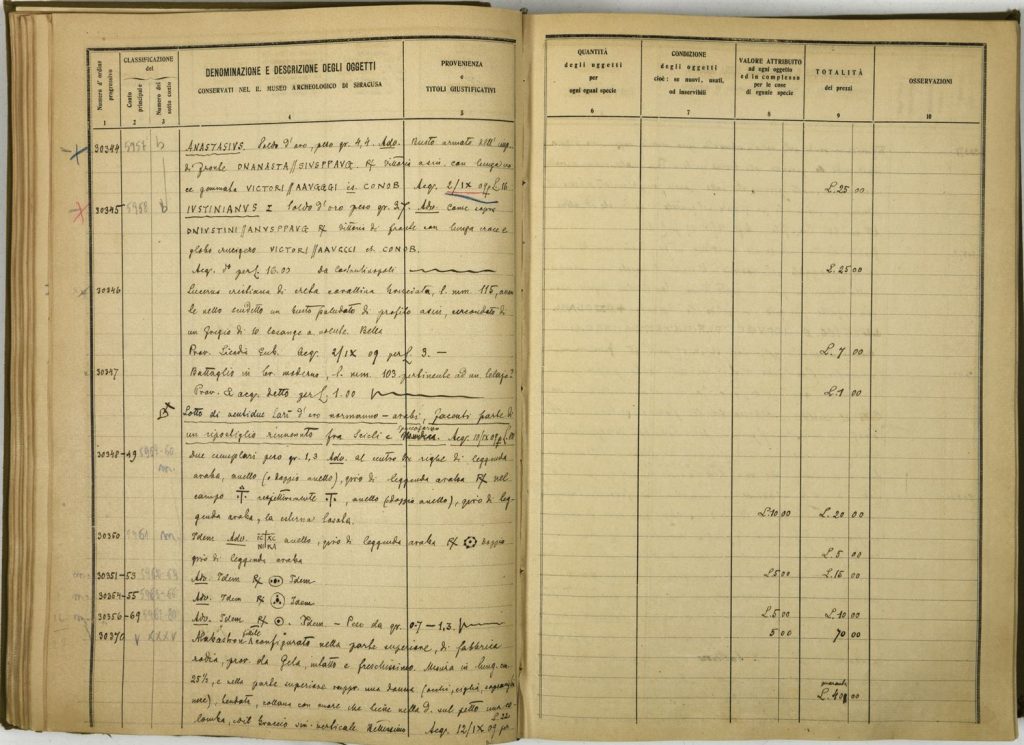 Numero d'ordine progressivo
CLASSIFICAZIONE
del
Conto principale
Numero del sotto conto
DENOMINAZIONE E DESCRIZIONE DEGLI OGGETTI
CONSERVATI NEL R. MUSEO ARCHEOLOGICO DI SIRACUSA
PROVENIENZA
e
TITOLI GIUSTIFICATIVI
1 2 3 4 5
30344 5957 b ANASTASIUS. Soldo d'oro, peso gr. 4,4. Adv. Busto armato dell' imp.
di fronte DNANASTA//SIUSPPAVG. R/ Vittoria a sin. con lunga cro
ce gemmata VICTORI//AAVGGGI es. CONOB. Acq. 2/IX 09 p L. 16
30345 5958 b IVSTINIANVS I Soldo d'oro peso gr. 3.7. Adv. Come sopra
DNIVSTINI//ANVSPPAVG R/ Vittoria di fronte con lunga croce e
globo crucigero VICTORI//AAVGGGI es. CONOB.
Acq. do per L. 16.00 da Costantinopoli
30346 Lucerna cristiana di creta corallina bruciata, l. mm 115, aven
te nello scudetto un busto paludato di profilo a sin., circondato da
un fregio di 10 losange a volute. Bella
Prov. Licodia Eub. Acq. 2/IX 09 per L. 3. —
30347 Battaglio in br. moderno, l. mm. 103 pertinente ad un
Prov. & acq. detto per L. 1.00
Lotto di ventidue tarì d'oro normanno - arabi, facenti parte di
un ripostiglio rinvenuto fra Scicli e Spaccaforno. Acq. 10/IX 09 p L.
30348-49 due esemplari peso gr. 1,3 Adv. al centro righe di leggenda
araba, anello (o doppio anello), giro di leggenda araba R/ nel
campo rispettivamente, anello (doppio anello), giro di leg
genda araba, la esterna
30350 5961 m. Idem Adv. IC XC NI KA anello, giro di leggenda araba R/ doppio
giro di leggenda araba
30351-53 Adv. Idem R/ Idem
30354-55 Adv. Idem R/ Idem
30356-69 Adv. Idem R/ Idem - Peso da gr. 0.7 - 1,3.
30370 V XXXV Alabastron fittile configurato nella parte superiore, di fabbrica
rodia, prov. da Gela, intatto e freschissimo. Misura in lung. cm.
25½, e nella parte superiore rappr. una donna (occhi, ciglia, sopracciglia
nere), bendata, collana con cuore che tiene nella d. sul petto una co
lomba, col braccio sin. verticale Acq. 12/IX 09 per L. 22
QUANTITÀ
degli oggetti
per
ogni egual specie
CONDIZIONE
degli oggetti
cioè: se nuovi, usati,
od inservibili
VALORE ATTRIBUITO
ad ogni oggetto
ed in complesso
per le cose
di eguale specie
TOTALITÀ
dei prezzi
OSSERVAZIONI
6 7 8 9 10
L. 25 00
L. 25 00
L. 7 00
L. 1 00
L. 10 00 L. 20 00
L. 5 00
L. 5 00 L. 15 00
L. 5 00 L. 10 00
5 00 70 00
quaranta
L. 40 00